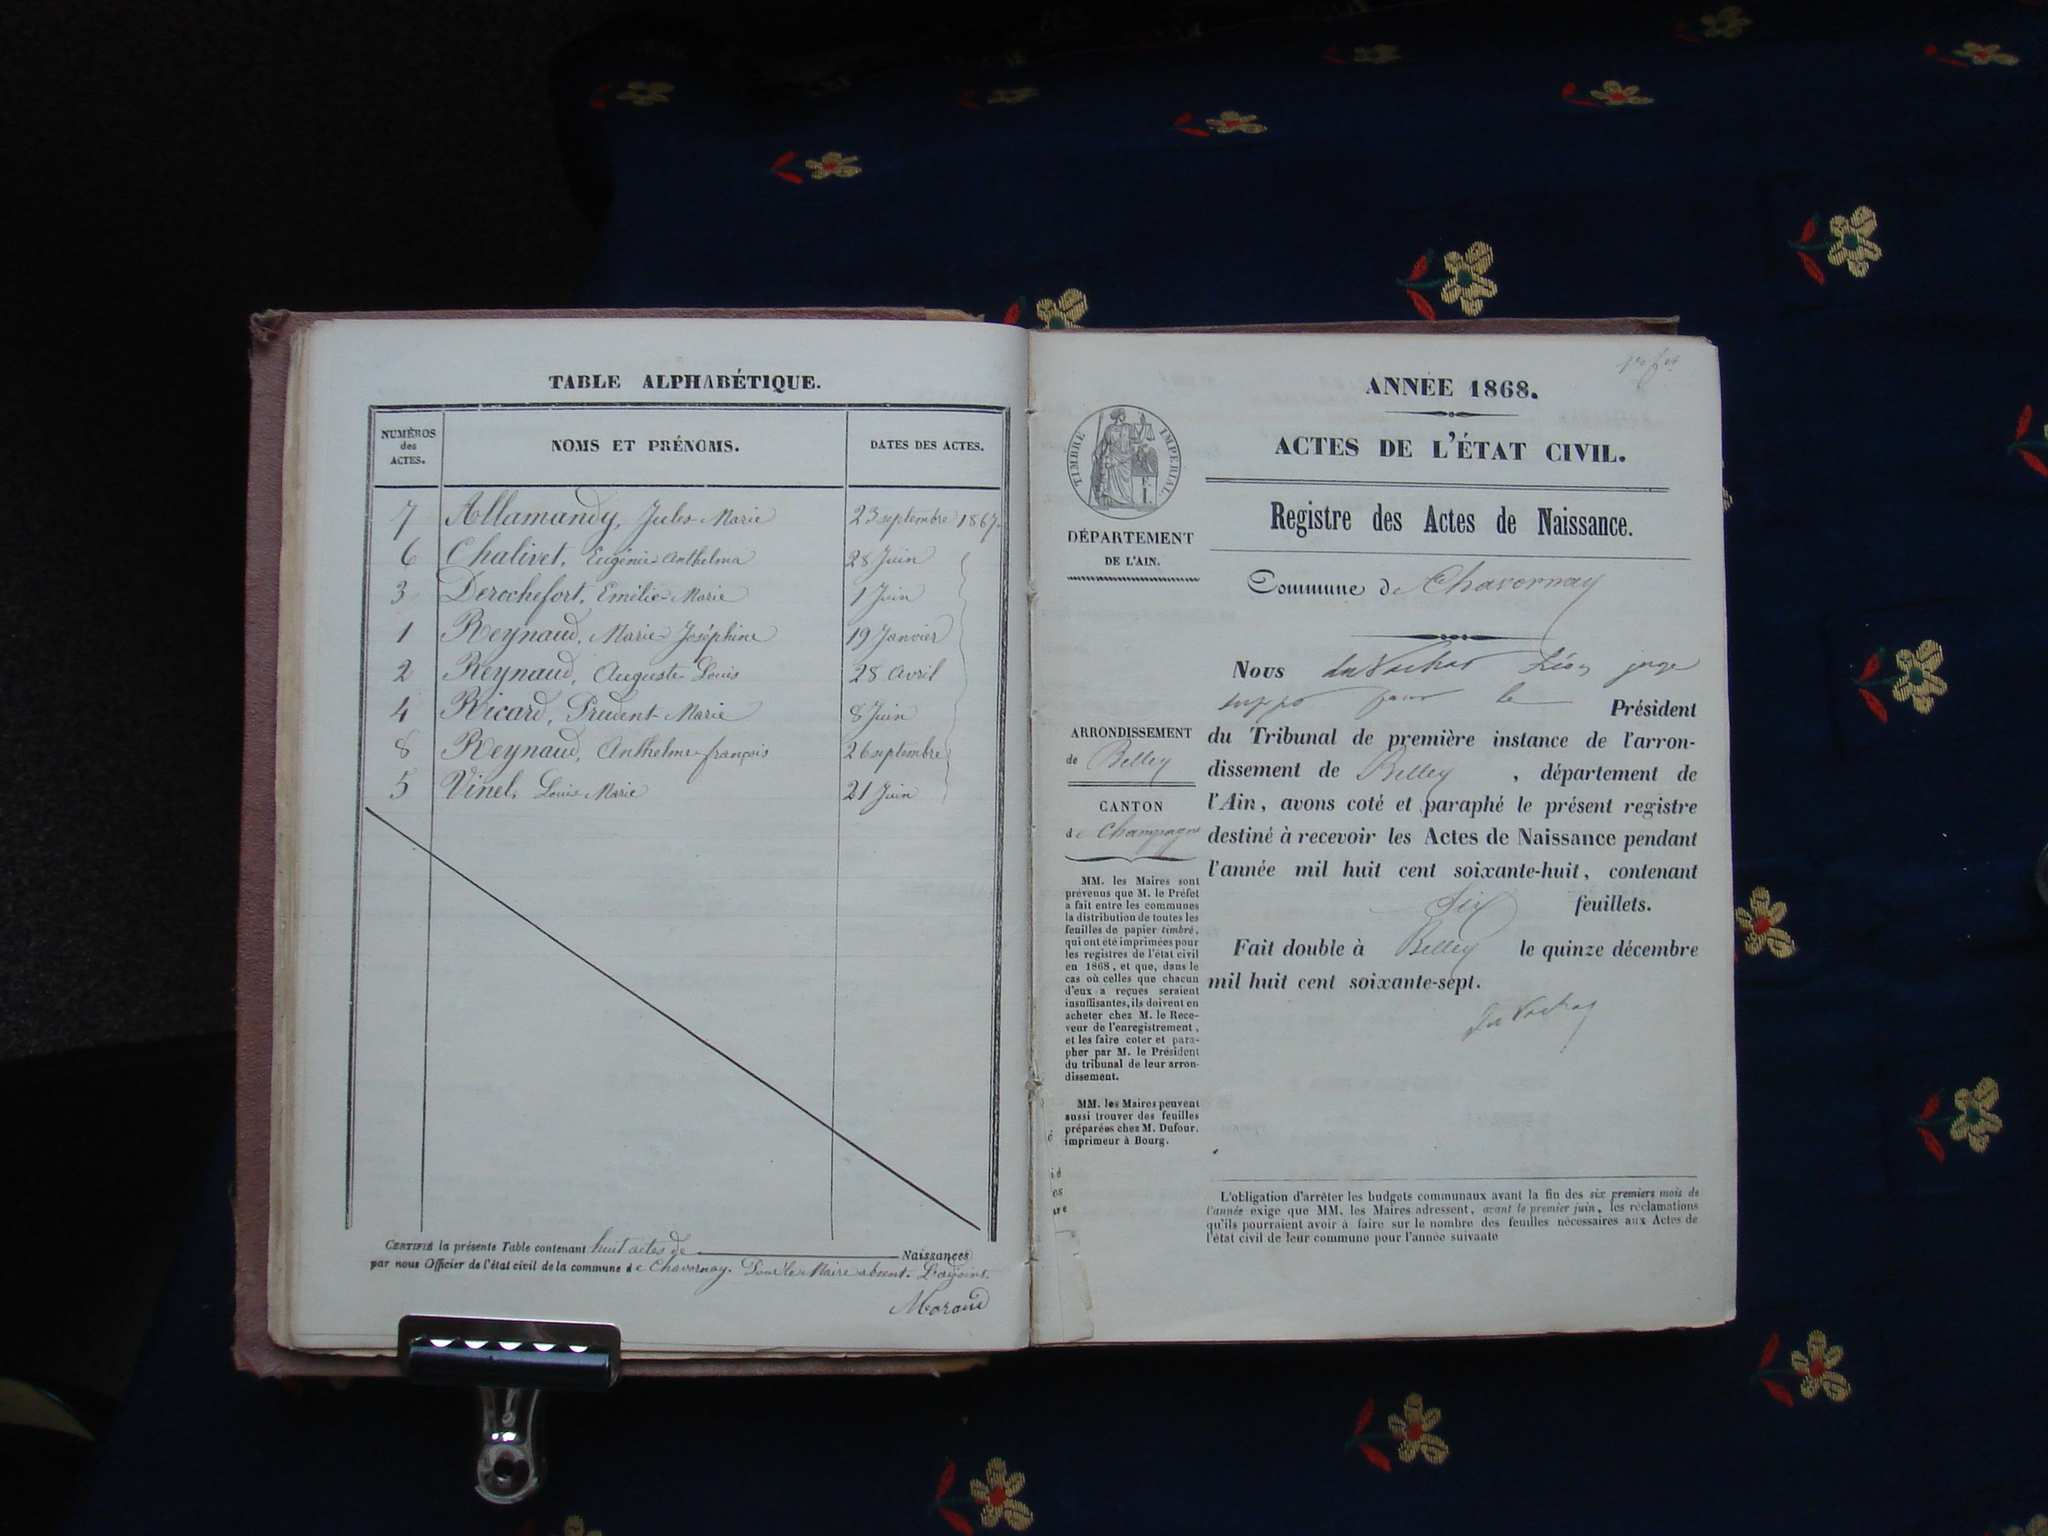 TABLE ALPHABÉTIQUE.
NUMÉROS des ACTES. NOMS ET PRÉNOMS. DATES DES ACTES.
7 Allamandy, Jules-Marie 23 septembre 1867.
6 Chalivet, Eugénie-Anthelma 28 Juin
3 Derochefort, Emélie-Marie 1 Juin
1 Reynaud, Marie-Joséphine 19 Janvier
2 Reynaud, Auguste-Louis 28 Avril
4 Ricard, Prudent-Marie 8 Juin
8 Reynaud, Anthelme-françois 26 septembre
5 Vinel, Louis-Marie 21 Juin
CERTIFIÉ la présente Table contenant huit actes de Naissances
par nous Officier de l'état civil de la commune de Chavornay. Pour le Maire absent. L'adjoint.
Morand
ANNÉE 1868.
ACTES DE L'ÉTAT CIVIL.
Registre des Actes de Naissance.
Commune de Chavornay
TIMBRE IMPÉRIAL
DÉPARTEMENT
DE L'AIN.
ARRONDISSEMENT
de Belley
CANTON
de Champagne
MM. les Maires sont
prévenus que M. le Préfet
a fait entre les communes
la distribution de toutes les
feuilles de papier timbré,
qui ont été imprimées pour
les registres de l'état civil
en 1868, et que, dans le
cas où celles que chacun
d'eux a reçues seraient
insuffisantes, ils doivent en
acheter chez M. le Rece-
veur de l'enregistrement,
et les faire coter et para-
pher par M. le Président
du tribunal de leur arron-
dissement.
MM. les Maires peuvent
aussi trouver des feuilles
préparées chez M. Dufour,
imprimeur à Bourg.
Nous Léon juge
pour le Président
du Tribunal de première instance de l'arron-
dissement de Belley, département de
l'Ain, avons coté et paraphé le présent registre
destiné à recevoir les Actes de Naissance pendant
l'année mil huit cent soixante-huit, contenant
Six feuillets.
Fait double à Belley le quinze décembre
mil huit cent soixante-sept.
L'obligation d'arrêter les budgets communaux avant la fin des six premiers mois de
l'année exige que MM. les Maires adressent, avant le premier juin, les réclamations
qu'ils pourraient avoir à faire sur le nombre des feuilles nécessaires aux Actes de
l'état civil de leur commune pour l'année suivante